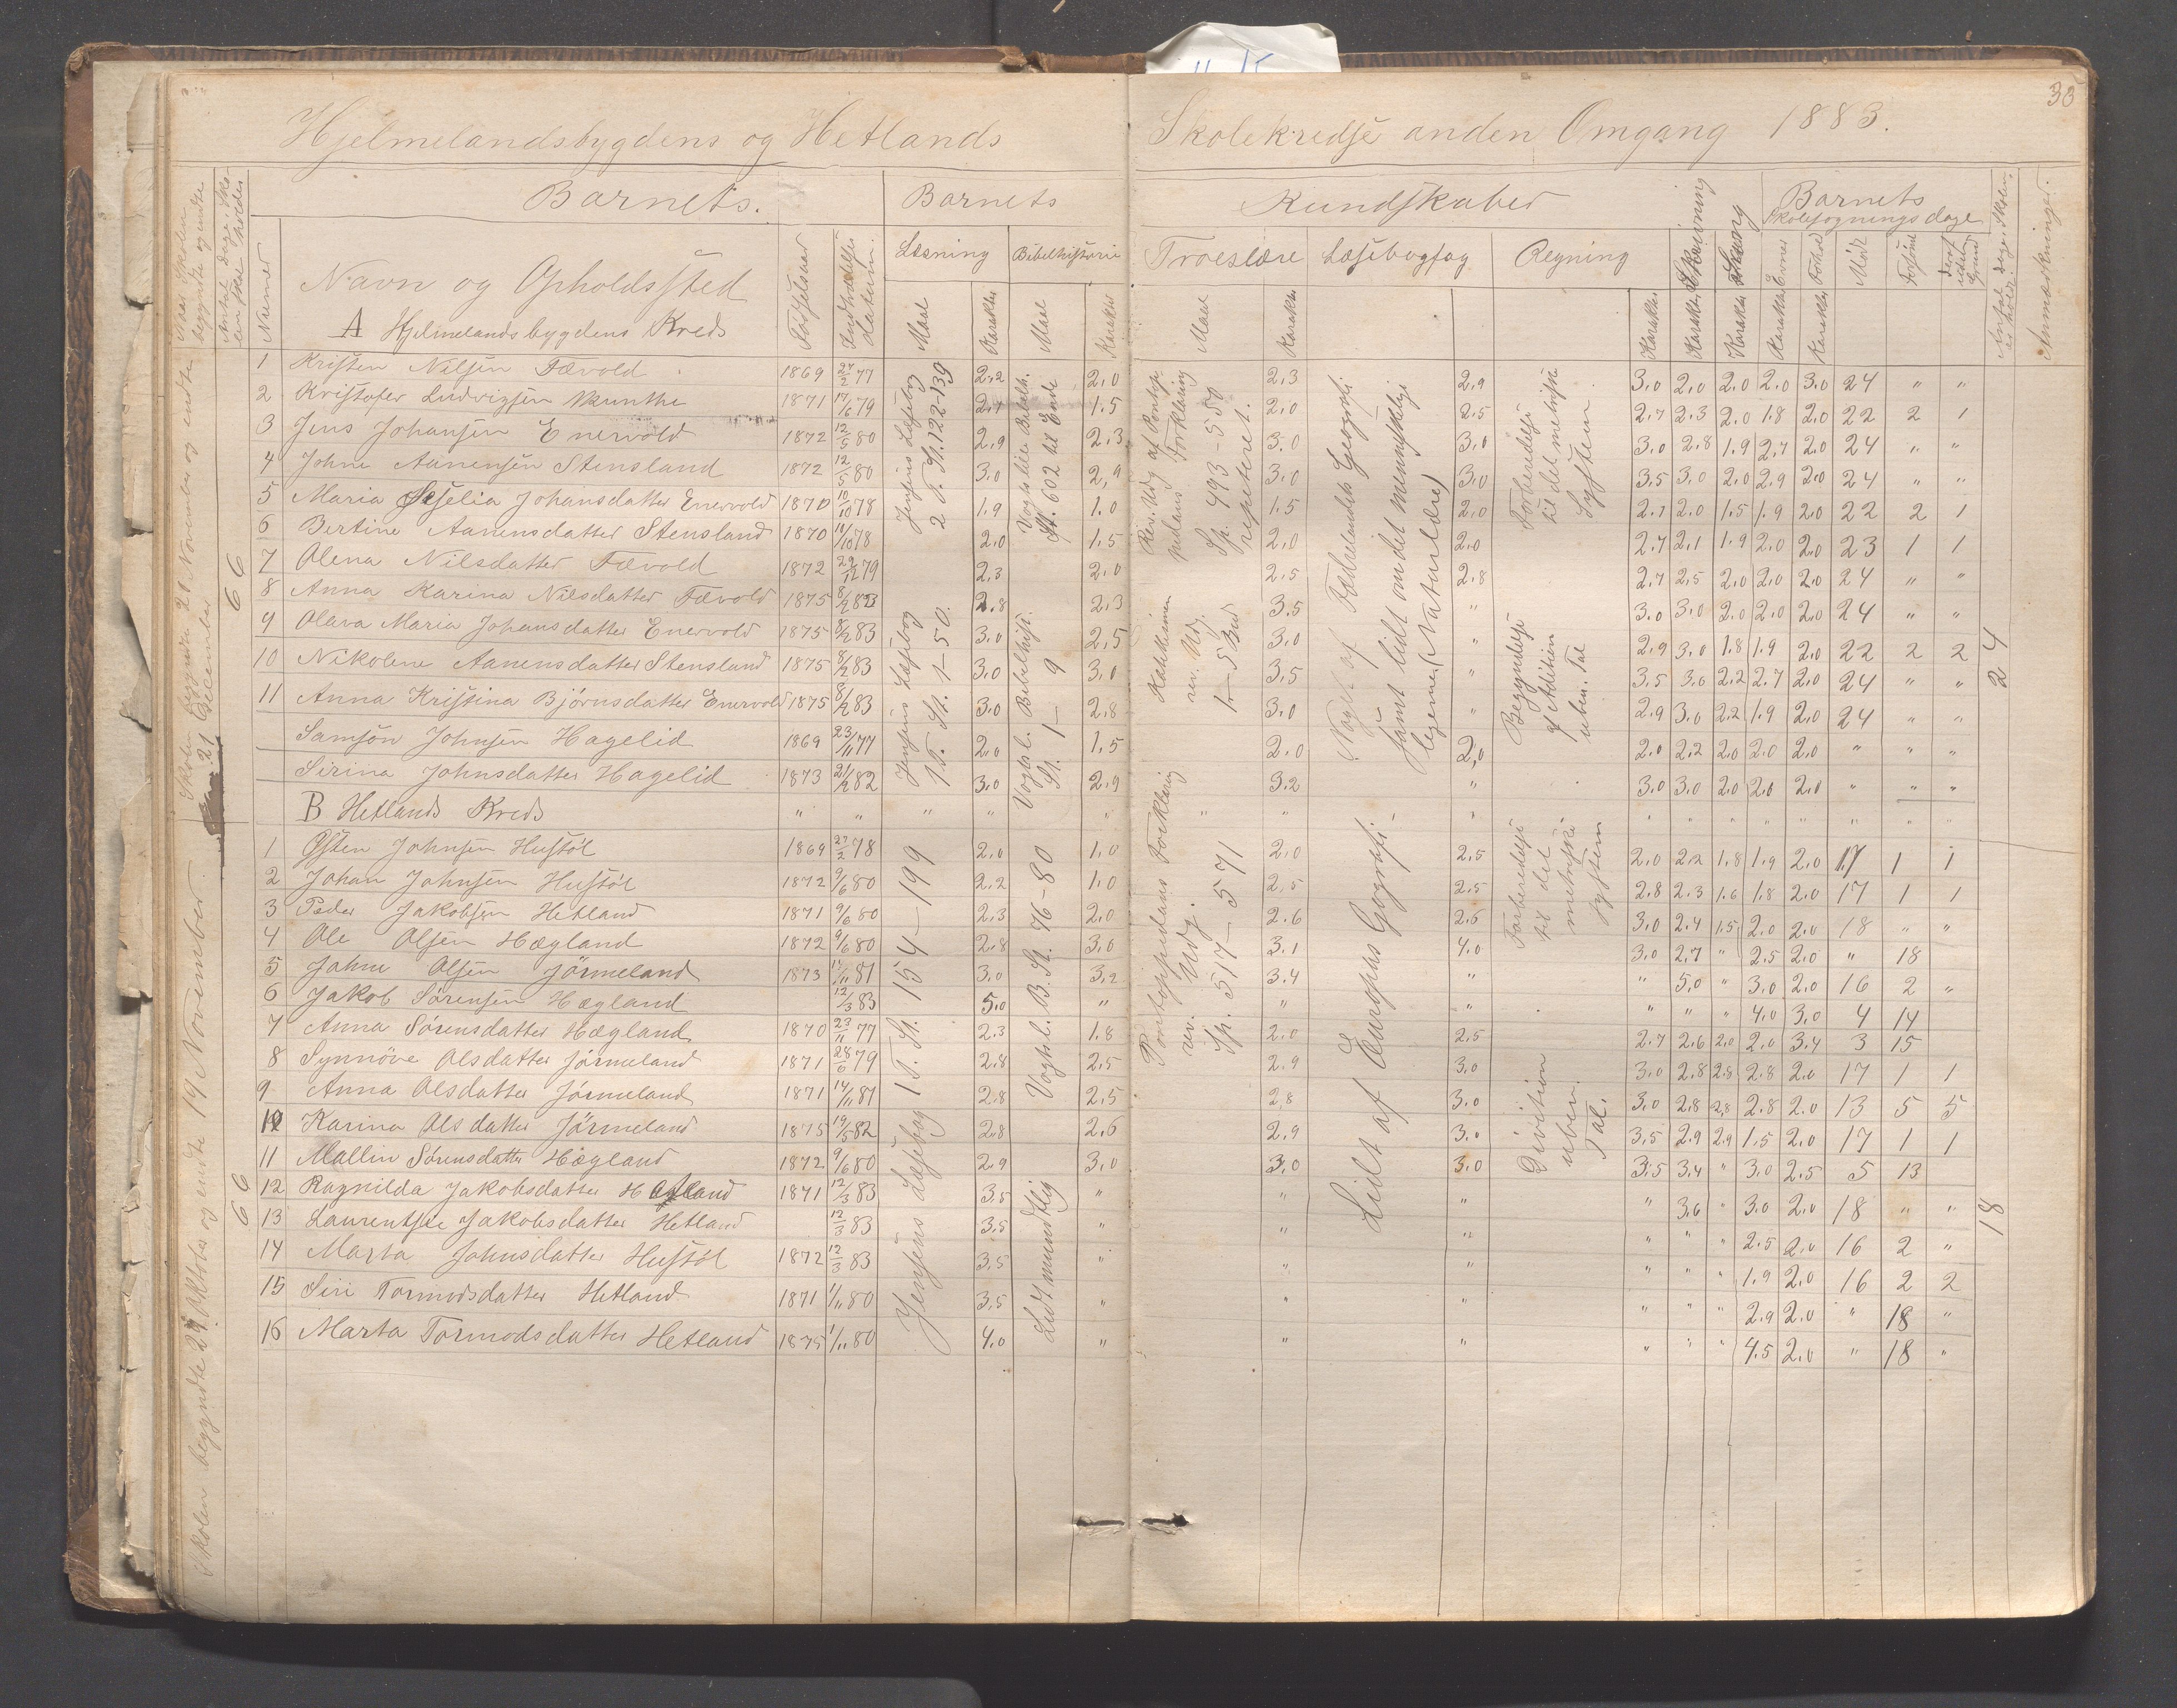 35
Hjelmelandsbygdens og Hetlands Skolekredse anden Omgang 1883.
Naar Skolen begyndte og endte
Numer
Barnets.
Barnets
Kundskaber
Barnets
Skolesøgningsdage
Anmærkninger.
Navn og Opholdssted
Fødselsaar
Indtrædelses datum.
Læsning
Bibelhistorie
Troeslære
Læsebogfag
Regning
Skrivning
Sang
Evner
Forhold
Mødt
Forsømt
Maal
Karakter
Maal
Karakter
Maal
Karakter
Karakter
Karakter
Karakter
Karakter
Karakter
A Hjelmelandsbygdens Kreds
Skolen begyndte 20 November og endte 21 December
66
24
Jensens Læsebog 2 T. St. 122-139
Vogts lille Bibelh. St. 602 til Ende
Rev. Udg af Pontoppidans Forklaring Sp. 493-550 repeteret.
Noget af Fædrelandets Geografi samt lidt om det menneskelige legeme (Naturlære)
Forberedelse til det metriske System
Jensens Læsebog 1 T. St. 1-50.
Vogts l. Bibelhist. St. 1-9
Katekismen rev. Udg. 1-5 Bud
Begyndelse af Adition uben. Tal
1 Kristen Nilsen Tævold 1869 27/2 77 2,2 2,0 2,3 2,9 3,0 2,0 2,0 2,0 3,0 24 " "
2 Kristofer Ludvigsen Munthe 1871 17/6 79 2,7 1,5 2,0 2,5 2,7 2,3 2,0 1,8 2,0 22 2 1
3 Jens Johansen Enervold 1872 12/5 80 2,9 2,3 3,0 3,0 3,0 2,8 1,9 2,7 2,0 24 " "
4 Johne Aanensen Stensland 1872 12/5 80 3,0 2,9 3,0 3,0 3,5 3,0 2,0 2,9 2,0 24 " "
5 Maria Selia Johansdatter Enervold 1870 10/10 78 1,9 1,0 1,5 2,0 2,7 2,0 1,5 1,9 2,0 22 2 1
6 Bertine Aanensdatter Stensland 1870 10/10 78 2,0 1,5 2,0 2,0 2,7 2,1 1,9 2,0 2,0 23 1 1
7 Olena Nilsdatter Tævold 1872 29/12 79 2,3 2,0 2,5 2,8 2,7 2,5 2,0 2,0 2,0 24 " "
8 Anna Karina Nilsdatter Tævold 1875 8/2 83 2,8 2,3 3,5 " 3,0 3,0 2,0 2,0 2,0 24 " "
9 Olava Maria Johansdatter Enervold 1875 8/2 83 3,0 2,5 3,0 " 2,9 3,0 1,8 1,9 2,0 22 2 2
10 Nikoline Aanensdatter Stensland 1875 8/2 83 3,0 3,0 3,5 " 3,5 3,6 2,2 2,7 2,0 24 " "
11 Anna Kristina Bjørnsdatter Enervold 1875 8/2 83 3,0 2,8 3,0 " 2,9 3,0 2,2 1,9 2,0 24 " "
Samson Johnsen Hagelid 1869 23/11 77 2,0 1,5 2,0 2,0 2,0 2,2 2,0 2,0 2,0 " " "
Sirina Johnsdatter Hagelid 1873 21/2 82 3,0 2,9 3,2 " 3,0 3,0 2,0 2,0 2,0 " " "
B Hetlands Kreds " " " " " " " " " " " " " " " "
Skolen begyndte 29 Oktober og endte 19 November
66
18
Jensens Læsebog 1 T. St. 154-199
Vogts l. B. St. 76-80
Lidt mundtlig
Pontoppidans Forklaring rev. Udg. Sp. 517-571
Lidt af Europas Geografi
Forberedelse til det metriske System
Division uben. Tal.
1 Østen Johnsen Hustøl 1869 27/2 78 2,0 1,0 2,0 2,5 2,0 2,2 1,8 1,9 2,0 17 1 1
2 Johan Johnsen Hustøl 1872 9/6 80 2,2 1,0 2,5 2,5 2,8 2,3 1,6 1,8 2,0 17 1 1
3 Peder Jakobsen Hetland 1871 9/6 80 2,3 2,0 2,6 2,6 3,0 2,4 1,5 2,0 2,0 18 " "
4 Ole Olsen Hægland 1872 9/6 80 2,8 3,0 3,1 4,0 3,0 2,7 " 2,5 2,0 " 18
5 Johne Olsen Jörmeland 1873 14/11 81 3,0 3,2 3,4 " " 5,0 " 3,0 2,0 16 2 "
6 Jakob Sørensen Hægland 12/3 83 5,0 " " " " " " 4,0 3,0 4 14
7 Anna Sørensdatter Hægland 1870 23/11 77 2,3 1,8 2,0 2,5 2,7 2,6 2,0 2,0 3,4 3 15
8 Synnöve Olsdatter Jörmeland 1871 28/6 79 2,8 2,5 2,9 3,0 3,0 2,8 2,8 2,8 2,0 17 1 1
9 Anna Olsdatter Jörmeland 1871 14/11 81 2,8 2,5 2,8 3,0 3,0 2,8 2,8 2,8 2,0 13 5 5
10 Karina Olsdatter Jörmeland 1875 19/5 82 2,8 2,6 2,9 3,0 3,5 2,9 2,9 1,5 2,0 17 1 1
11 Mallin Sørensdatter Hægland 1872 9/6 80 2,9 3,0 3,0 3,0 3,5 3,4 " 3,0 2,5 5 13
12 Ragnilda Jakobsdatter Hetland 1871 12/3 83 3,5 " " " " 3,6 " 3,0 2,0 18 " "
13 Laurentse Jakobsdatter Hetland 12/3 83 3,5 " " " " " " 2,5 2,0 16 2 "
14 Marta Johnsdatter Hustöl 1872 12/3 83 3,5 " " " " " " 1,9 2,0 16 2 2
15 Siri Tormodsdatter Hetland 1871 1/11 80 3,5 " " " " " " 2,9 2,0 " 18 "
16 Marta Tormodsdatter Hetland 1875 1/11 80 4,0 " " " " " " 4,5 2,0 " 18 "